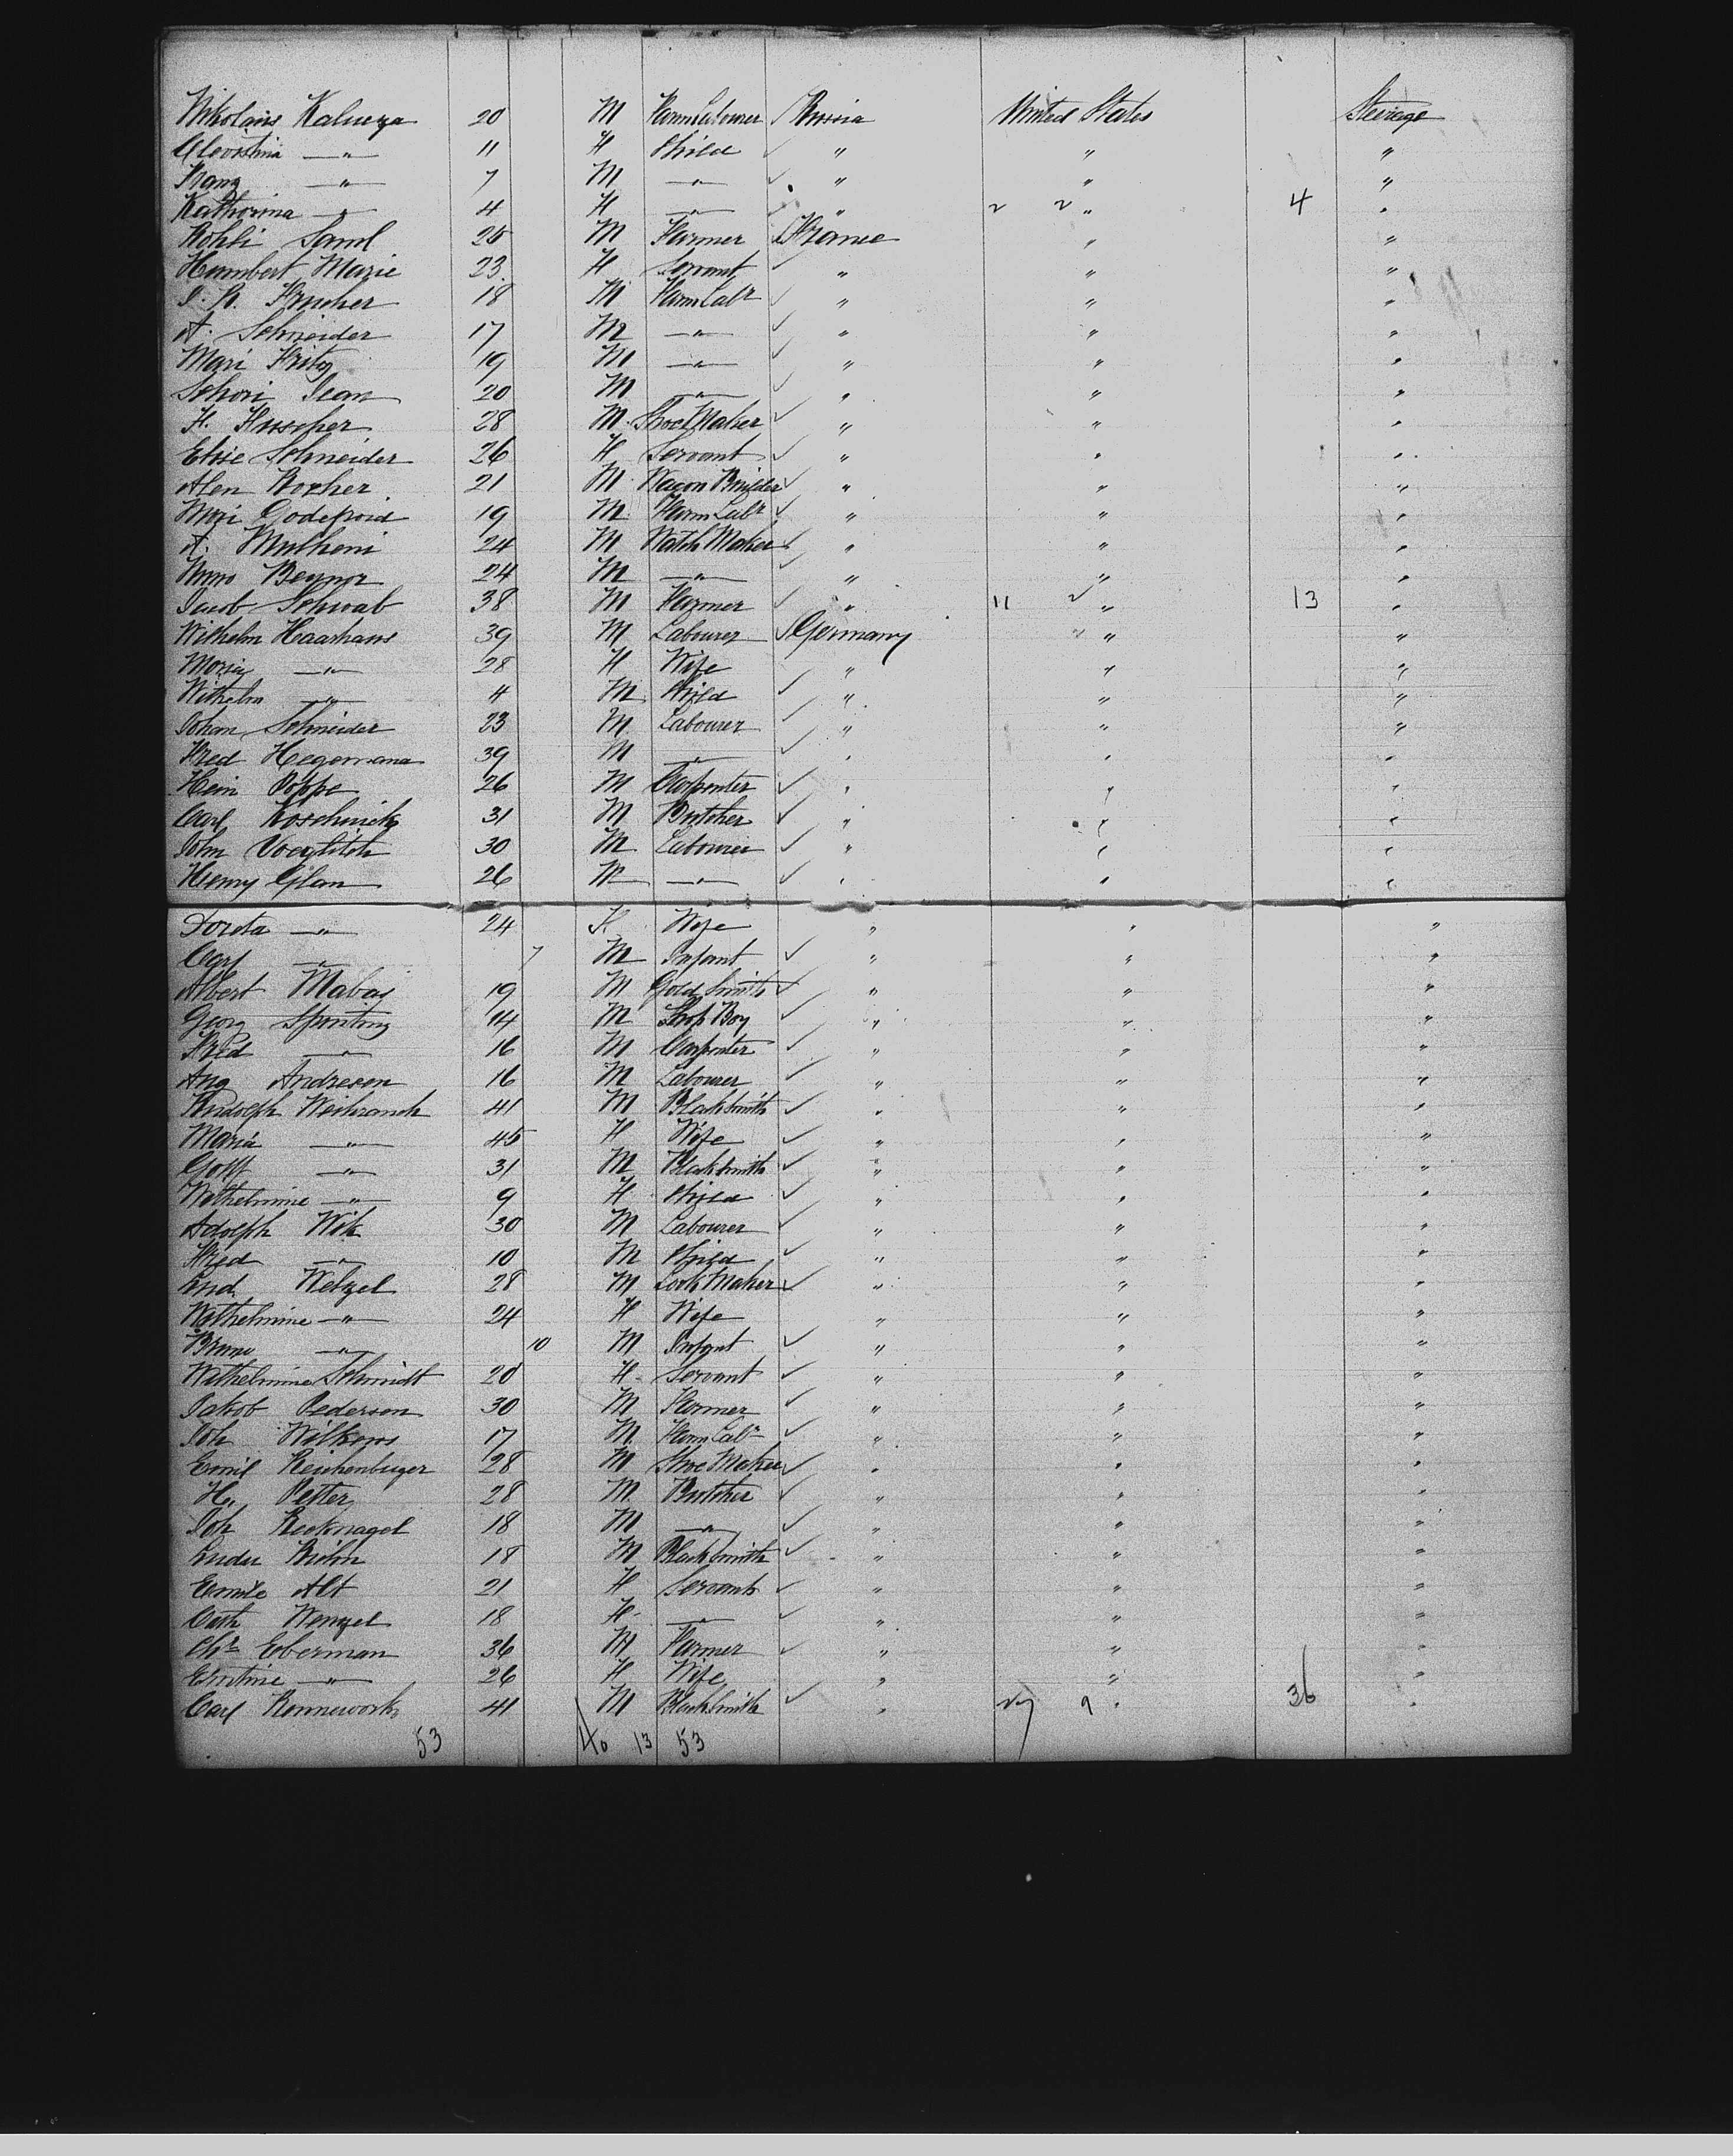 Nikolaus Kalueza 20 M Farm Labourer Russia United States Steerage
—"— 11 F Child " " "
Franz —"— 7 M —"— " " "
Katharina —"— 4 F —"— " 2 2 " 4 "
Kohli Saml 25 M Farmer France " "
Humbert Marie 23 F Servant " " "
18 M Farm Labr " " "
A. Schneider 17 M —"— " " "
Mari Fritz 19 M —"— " " "
Schori Jean 20 M —"— " " "
F. 28 M Shoe Maker " " "
Elise Schneider 26 F Servant " " "
Alen Kocher 21 M Wagon Builder " " "
Mori Godefroid 19 M Farm Labr " " "
A. Mulheni 24 M Watch Maker " " "
Numo Beynor 24 M —"— " " "
Jacob Schwab 38 M Farmer " 11 2 " 13 "
Wilhelm Haarhaus 39 M Labourer Germany " "
Maria —"— 28 F Wife " " "
Wilhelm —"— 4 M Child " " "
Johan Schneider 23 M Labourer " " "
Fred Hegemann 39 M —"— " " "
Hein Poppe 26 M Carpenter " " "
Carl Koschnick 31 M Butcher " " "
John 30 M Labourer " " "
Henry Glan 26 M —"— " " "
Doreta —"— 24 F Wife " " "
Carl —"— 7 M Infant " " "
Albert Mabaj 19 M Gold Smith " " "
Georg Sponting 14 M Shop Boy " " "
Fred —"— 16 M Carpenter " " "
Aug Andresen 16 M Labourer " " "
Rudolph Weihrauch 41 M Blacksmith " " "
Maria —"— 45 F Wife " " "
—"— 31 M Blacksmith " " "
Wilhelmine —"— 9 F Child " " "
Adolph Wik 30 M Labourer " " "
Fred —"— 10 M Child " " "
Lud. Wetzel 28 M Lock Maker " " "
Wilhelmine —"— 24 F Wife " " "
Bruno —"— 10 M Infant " " "
Wilhelmine Schmidt 20 F Servant " " "
Jakob Pedersen 30 M Farmer " " "
Joh Wilkens 17 M Farm Labr " " "
Emil Reichenbuger 28 M Shoe Maker " " "
H. Petter 28 M Butcher " " "
Joh Recknagel 18 M —"— " " "
18 M Blacksmith " " "
Emilie Alt 21 F Servant " " "
Cath Wenzel 18 F —"— " " "
Chr Eberman 36 M Farmer " " "
Erntine —"— 26 F Wife " " "
Carl 41 M Blacksmith " 27 9 " 36 "
53 40 13 53